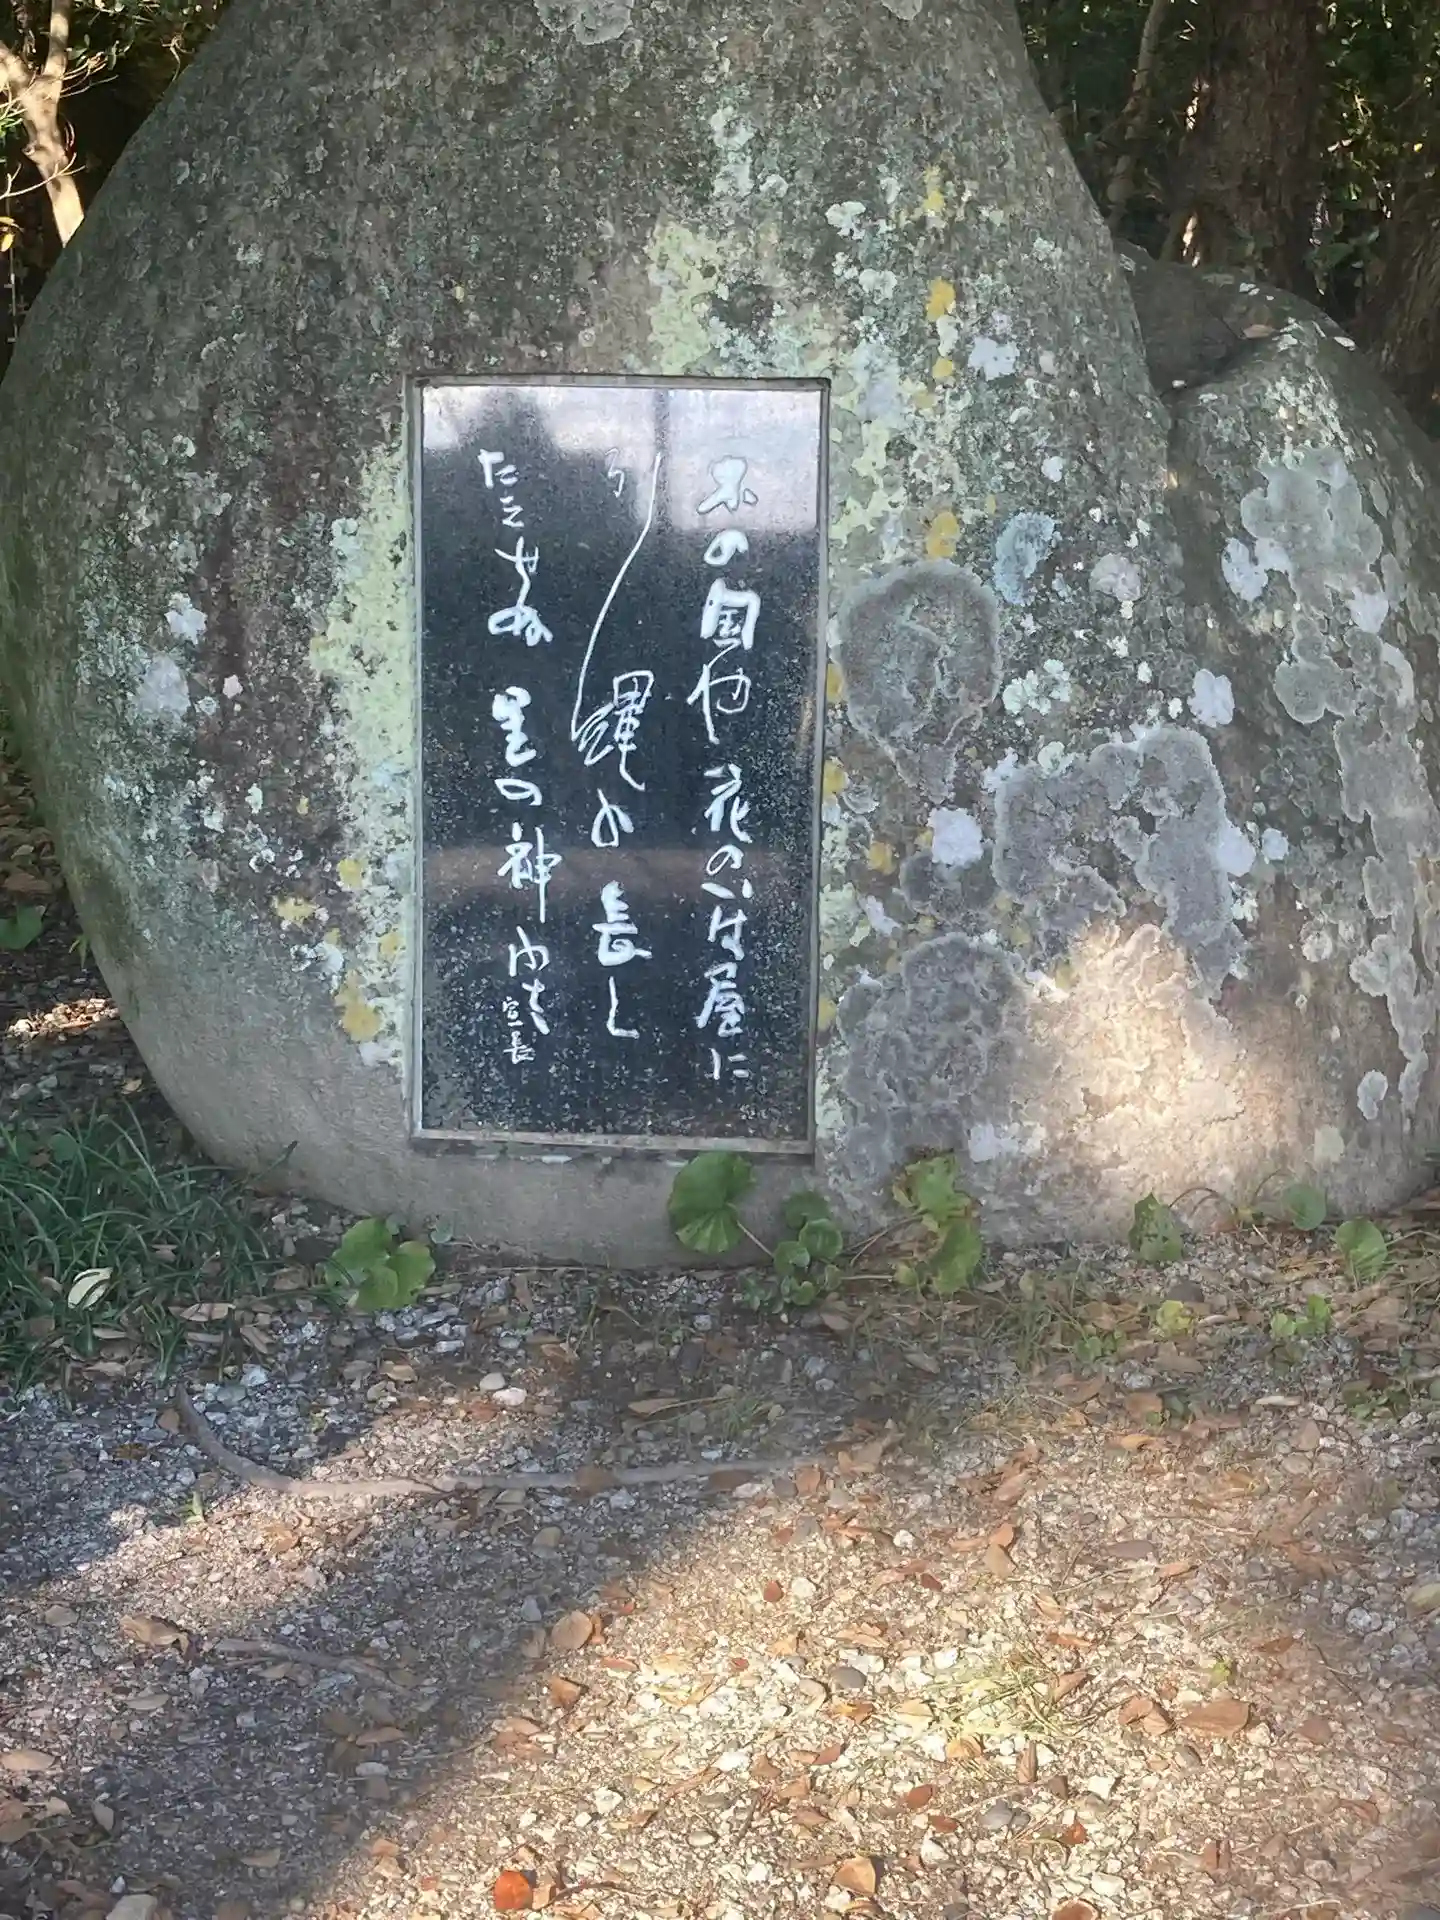 木の国や花のいは屋に
引縄の長く
たえせぬ里の神わさ
宣長